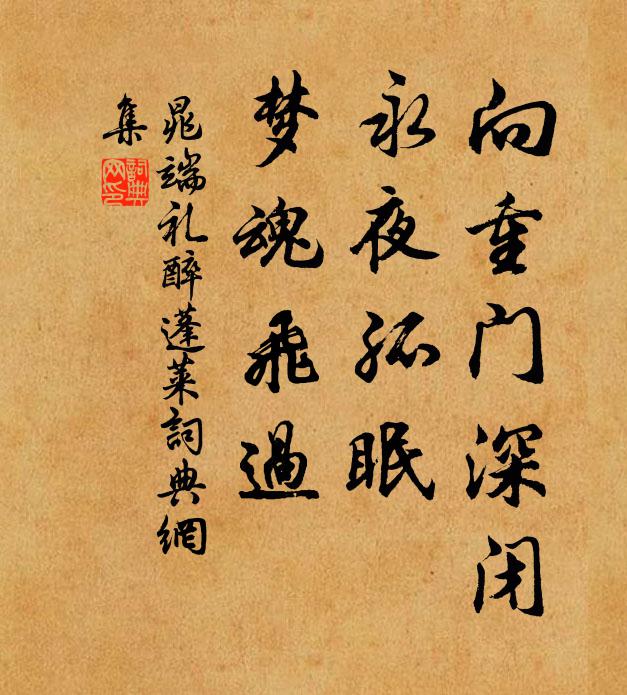 向重门深闭
永夜孤眠
梦魂飛過
晁端礼醉蓬莱詞典網
集
詞典
网印